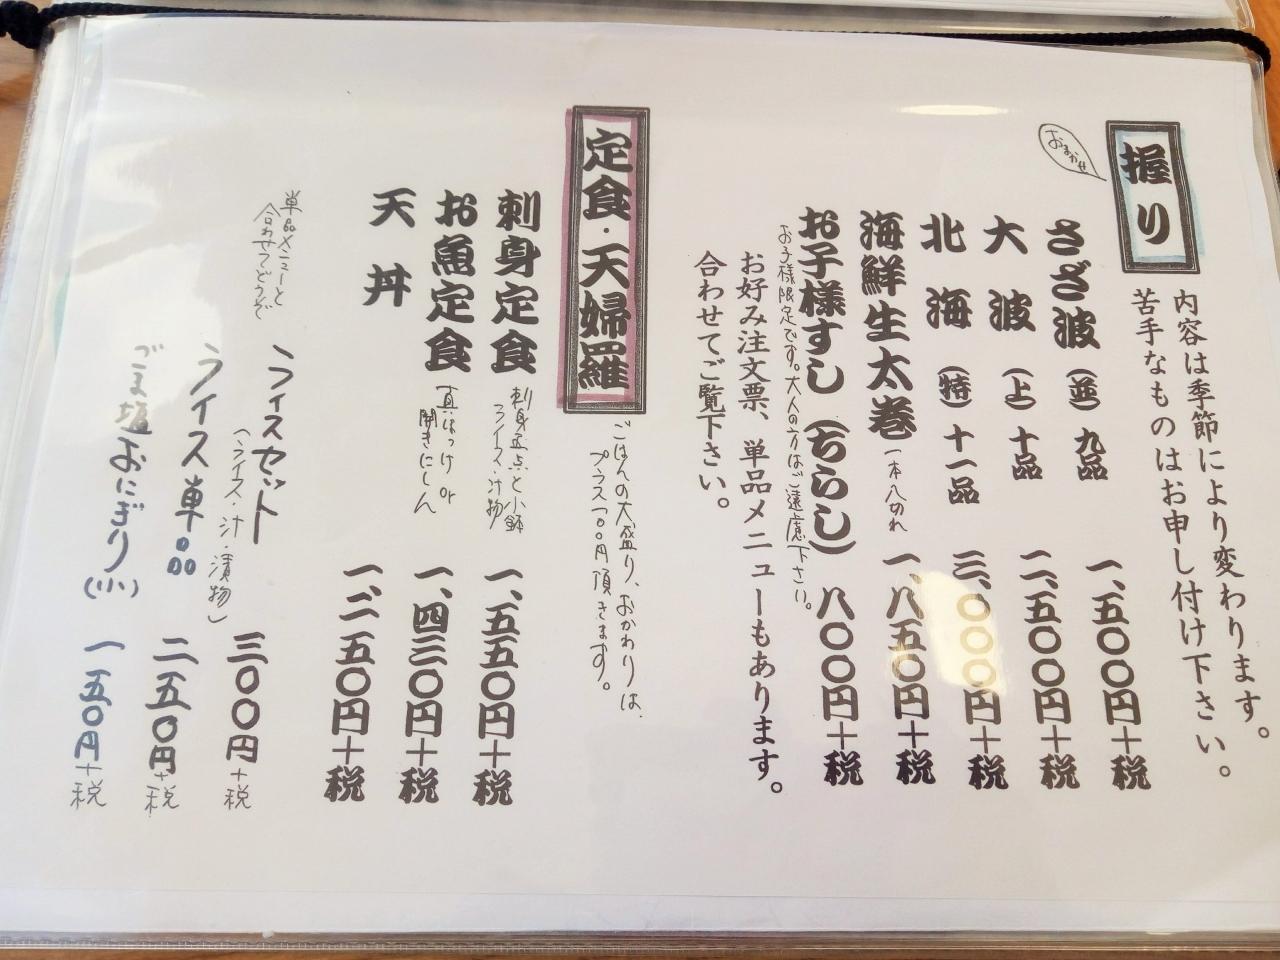 握り
おまかせ
内容は季節により変わります。
苦手なものはお申し付け下さい。
さざ波（並）九品 一、五〇〇円＋税
大波（上）十品 二、五〇〇円＋税
北海（特）十一品 三、〇〇〇円＋税
海鮮生太巻 一本八切れ 一、八五〇円＋税
お子様すし（ちらし） 八〇〇円＋税
お子様限定です。大人の方はご遠慮下さい。
お好み注文票、単品メニューもあります。
合わせてご覧下さい。
定食・天婦羅
ごはんの大盛り、おかわりは、
プラス一〇〇円頂きます。
刺身定食 刺身五点と小鉢 ライス・汁物 一、五五〇円＋税
お魚定食 真ほっけ or 開きにしん 一、四三〇円＋税
天丼 一、二五〇円＋税
単品メニューと
合わせてどうぞ
ライスセット 三〇〇円＋税
（ライス・汁・漬物）
ライス単品 二五〇円＋税
ごま塩おにぎり（小） 一五〇円＋税